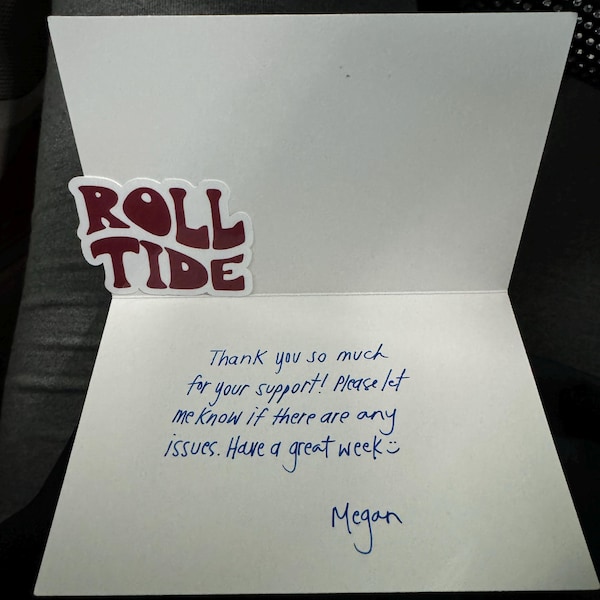 ROLL
TIDE
Thank you so much
for your support! Please let
me know if there are any
issues. Have a great week :)
Megan